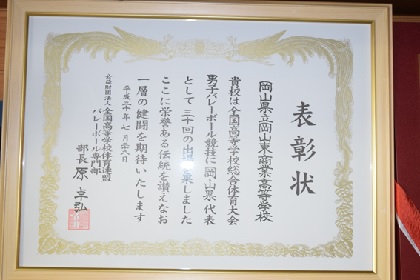 表彰状
岡山県立岡山東商業高等学校
貴校は全国高等学校総合体育大会
男子バレーボール競技に岡山県代表
として三十回の出場を果しました
ここに栄誉ある伝統を讃えなお
一層の健闘を期待いたします
平成三十年七月
公益財団法人全国高等学校体育連盟
バレーボール専門部
部長 原 卓弘